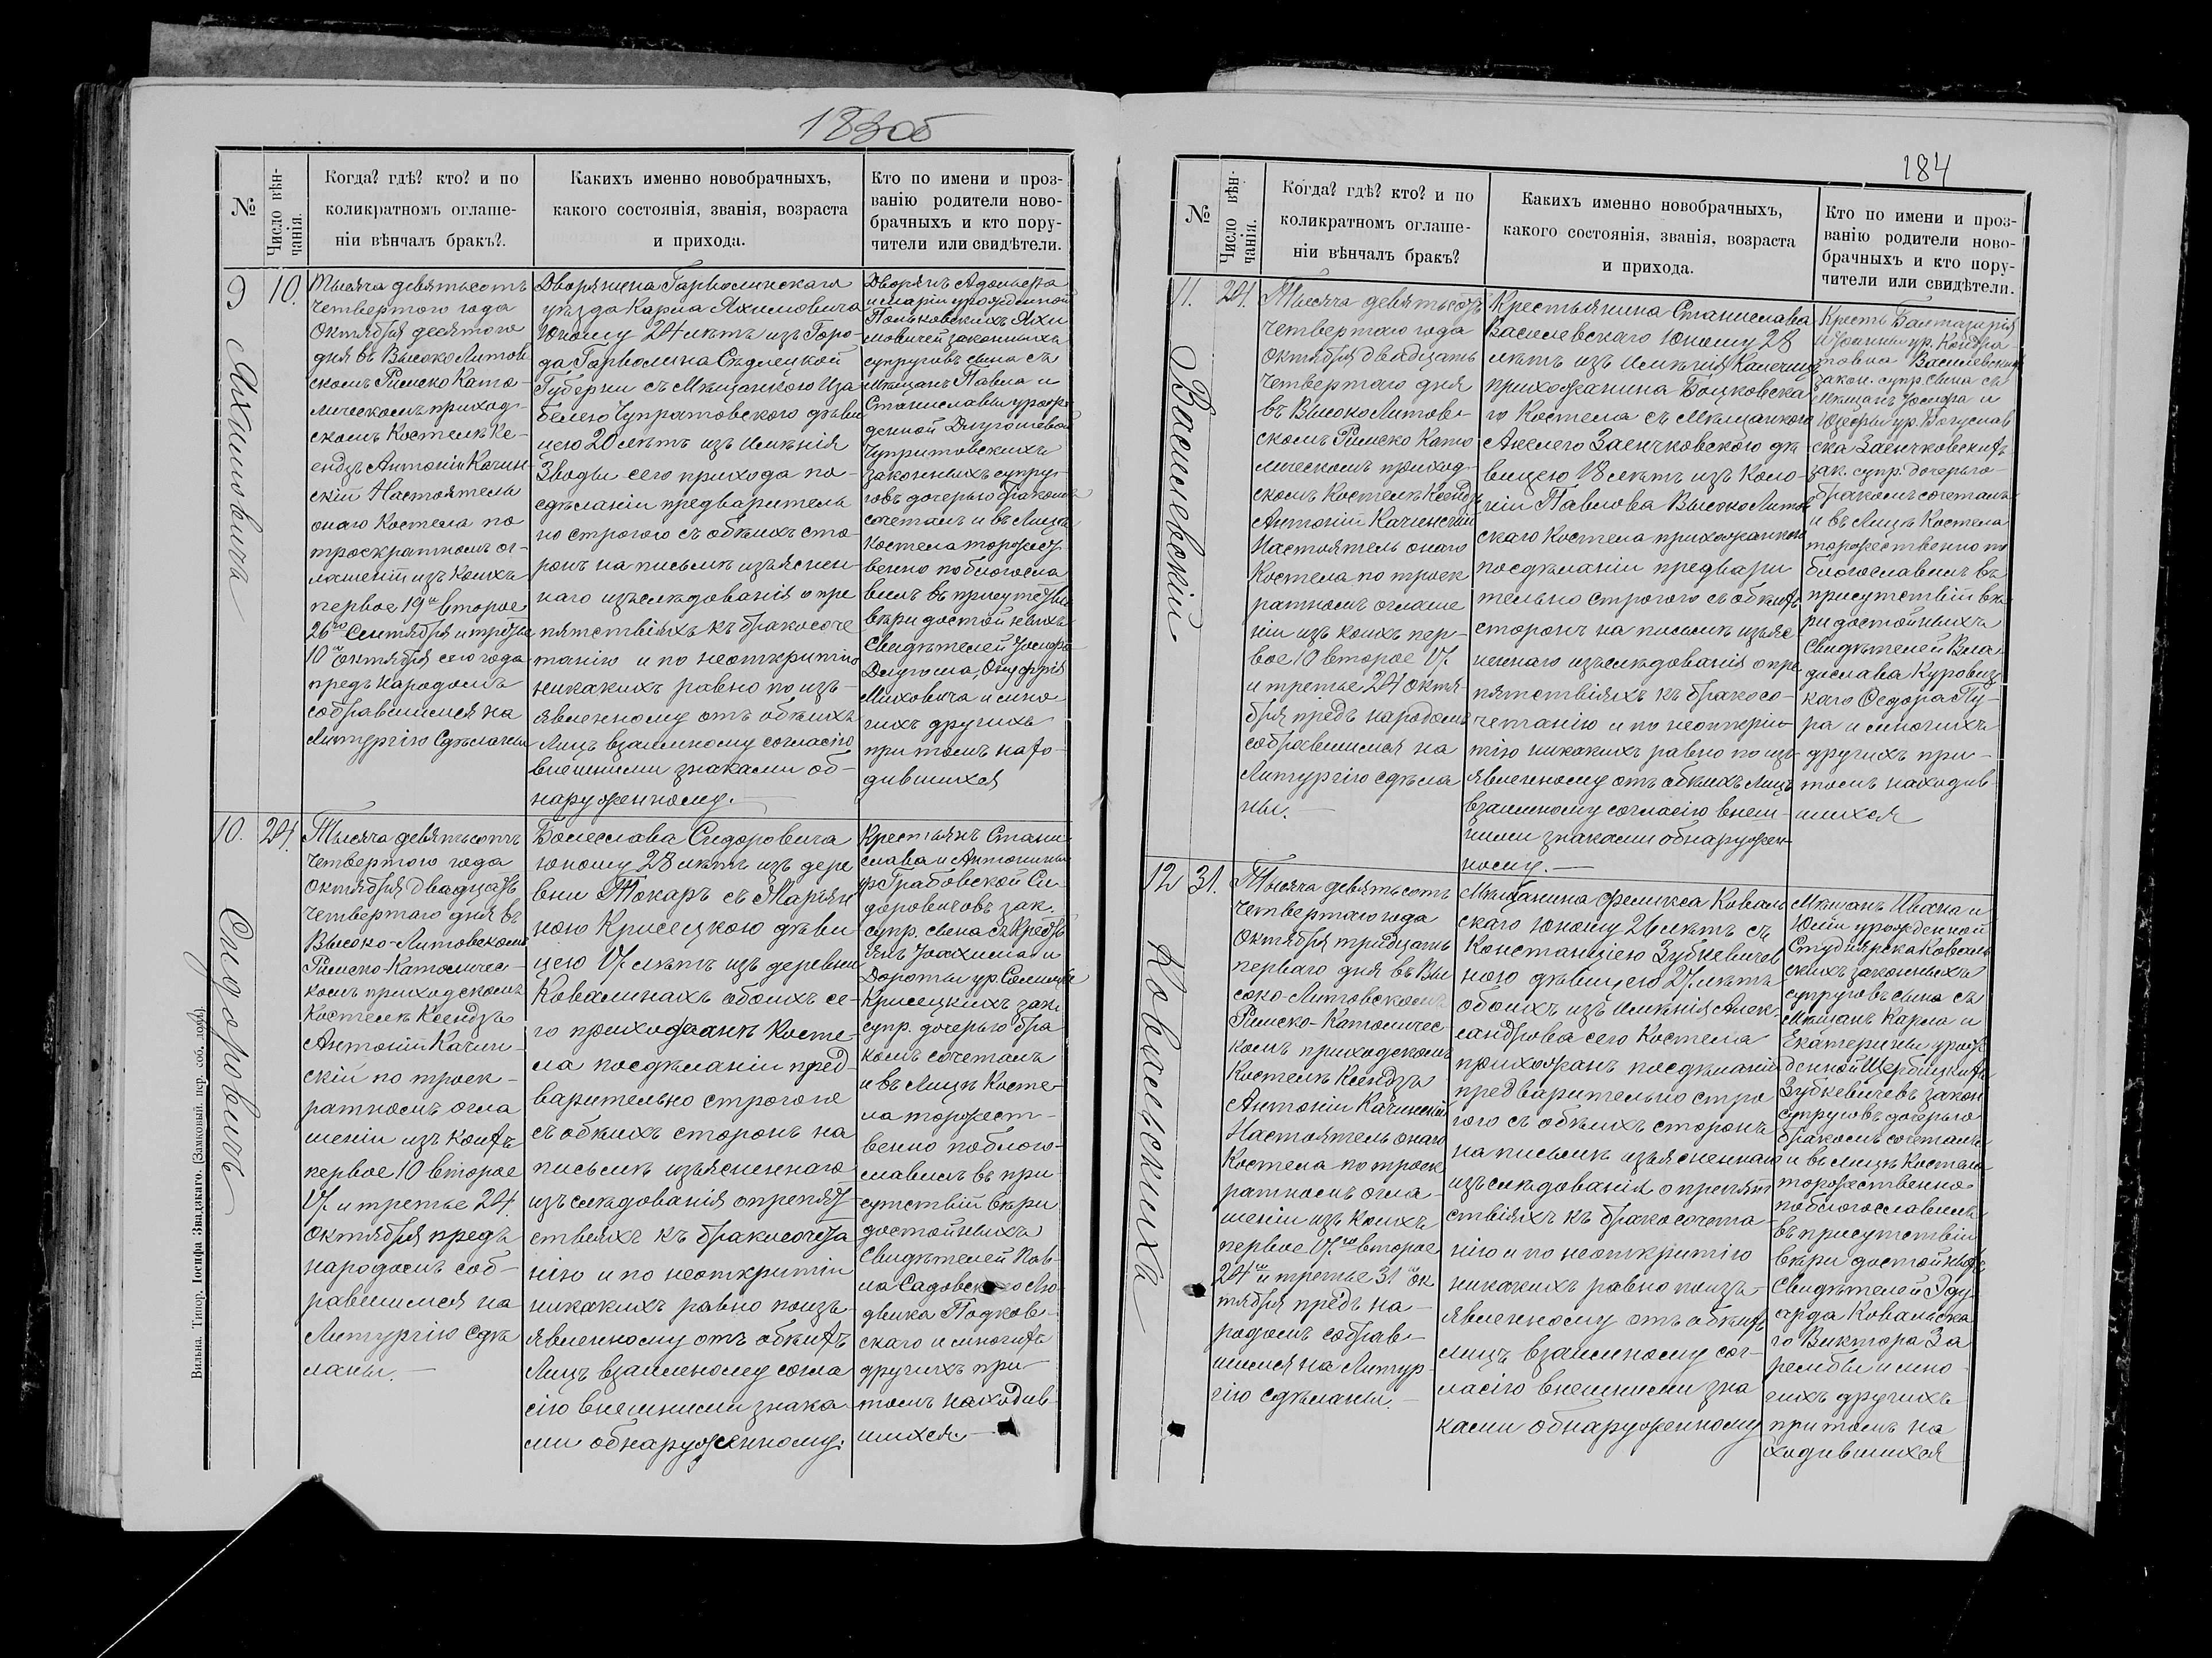 183об
№
Число вѣн-
чанія.
Когда? гдѣ? кто? и по
коликратномъ оглаше-
ніи вѣнчалъ бракъ?.
Какихъ именно новобрачныхъ,
какого состоянія, званія, возраста
и прихода.
Кто по имени и проз-
ванію родители ново-
брачныхъ и кто пору-
чители или свидѣтели.
9
10.
Яхимовичъ
Тысяча девятьсотъ
четвертого года
Октября десятого
дня въ Высоко Литов
скомъ Римско Като-
лическомъ приход-
скомъ Костелѣ Кс-
ендзъ Антоній Качин-
скій Настоятель
онаго Костела по
троекратномъ ог-
лашеніи изъ коихъ
первое 19го второе
26го Сентября и третье
10го Октября сего года
предъ народомъ
собравшимся на
Литургію Сдѣланы
Дворянина Гарволинскаго
уѣзда Карла Яхимовича
Юношу 24 лѣтъ изъ Горо-
да Гарволина Сѣдлецкой
Губерніи съ Мѣщанкою Иза
белею Чупратовскою дѣви
цею 20 лѣтъ изъ имѣнія
Зводы сего прихода по-
сдѣланіи предваритель
но строгого съ обѣихъ сто-
ронъ на письмѣ изъяснен
наго изслѣдованія о пре
пятствіяхъ къ бракосоче
танію и по неоткрытію
никакихъ равно по изъ-
явленному отъ обѣихъ
Лицъ взаимному согласію
внешними знаками об-
наруженному.
Дворянъ Адольфа
и Маріи урожденной
Поньковскихъ Яхи
мовичей законныхъ
супруговъ сына съ
Мѣщанъ Павла и
Станиславы урож-
денной Длугошевой
Чупратовскихъ
законныхъ супру-
говъ дочерью бракомъ
сочеталъ и въ Лицѣ
Костела торжест
венно поблагосла
вилъ въ присутствіи
вѣри достойныхъ
Свидѣтелей Іосифа
Длугоша, Онуфрія
Миховича и мно
гихъ другихъ
при томъ нахо-
дившихся
10.
24.
Сидоровичъ
Тысяча девятьсотъ
четвертого года
Октября двадцать
четвертаго дня въ
Высоко-Литовскомъ
Римско-Католичес-
комъ приходскомъ
Костелѣ Ксендзъ
Антоній Качин-
скій по троек-
ратномъ огла
шеніи изъ коихъ
первое 10 второе
17 и третье 24
Октября предъ
народомъ соб-
равшимся на
Литургію Сдѣ
ланы.
Болеслава Сидоровича
юношу 28 лѣтъ изъ дере
вни Токаръ съ Маріян
ною Крисецкою дѣви
цею 17 лѣтъ изъ деревни
Ковалинахъ обоихъ се-
го прихожанъ Косте-
ла посдѣланіи пред-
варительно строгого
съ обѣихъ сторонъ на
письмѣ изъясненнаго
изслѣдованія о препят
ствіяхъ къ бракосочета
нію и по неоткрытіи
никакихъ равно поизъ-
явленному отъ обѣихъ
Лицъ взаимному согла
сію внешними знака
ми обнаруженному.
Крестьянъ Стани
слава и Антонины
ур Грабовской Си-
доровичовъ зак.
супр. сына съ крест
янъ Іоахима и
Дороты ур. 
Крисецкихъ зак
супр. дочерью бра
комъ сочеталъ
и въ Лицѣ Косте-
ла торжест-
венно поблаго-
славилъ въ при
сутствіи вѣри
достойныхъ
Свидѣтелей Пав-
ла Садовского Лю
двика Подков-
скаго и многихъ
другихъ при-
томъ находив-
шихся.
Вильна. Типогр. Іосифа Звадзкаго. (Замковый. пер. соб. домъ).
184
№
Число вѣн-
чанія.
Когда? гдѣ? кто? и по
коликратномъ оглаше-
ніи вѣнчалъ бракъ?
Какихъ именно новобрачныхъ,
какого состоянія, званія, возраста
и прихода.
Кто по имени и проз-
ванію родители ново-
брачныхъ и кто пору-
чители или свидѣтели.
11.
24.
Василевскій
Тысяча девятьсотъ
четвертаго года
Октября двадцать
четвертаго дня
въ Высоко Литов-
скомъ Римско Като
лическомъ приход-
скомъ Костелѣ Ксендзъ
Антоній Качинскій
Настоятель онаго
Костела по троек
ратномъ оглаше
ніи изъ коихъ пер-
вое 10 второе 17
и третье 24 Октя-
бря предъ народомъ
собравшимся на
Литургію сдѣла
ны.
Крестьянина Станислава
Василевскаго Юношу 28
лѣтъ изъ имѣнія
прихожанина Боцковска
го Костела съ Мѣщанкою
Анелею Заенчковскою дѣ
вицею 18 лѣтъ изъ Коло-
ніи Павлова Высоко Литов
скаго Костела прихожанкою
посдѣланіи предвари
тельно строгого съ обѣихъ
сторонъ на письмѣ изъяс
неннаго изслѣдованія о пре
пятствіяхъ къ бракосо-
четанію и по неоткры-
тію никакихъ равно по изъ-
явленному отъ обѣихъ Лицъ
взаимному согласію внеш-
ними знаками обнаружен
ному.
Крестъ Балтазарія
и Іоанны ур. Кондра-
товна Василевскихъ
закон. супр. сына съ
Мѣщанъ Іосифа и
Юзефы ур. Богуслав
ска Заенчковскихъ
зак. супр. дочерью
бракомъ сочеталъ
и въ Лицѣ Костела
торжественно по
благославилъ въ
присутствіи вѣ-
ри достойныхъ
Свидѣтелей Вла-
дислава Куровиц
каго Федора Пу-
ра и многихъ
другихъ при-
томъ находив-
шихся
12
31.
Ковальскихъ
Тысяча девятьсотъ
Четвертаго года
Октября тридцать
перваго дня въ Вы
соко-Литовскомъ
Римско-Католичес
комъ приходскомъ
Костелѣ Ксендзъ
Антоній Качинскій
Настоятель онаго
Костела по троек
ратномъ огла-
шеніи изъ коихъ
первое 17го второе
24го и третье 31го Ок
тября предъ на-
родомъ собрав-
шимся на Литур
гію сдѣланы.
Мѣщанина Феликса Коваль
скаго Юношу 26 лѣтъ съ
Констанціею Зубкевичев
ною дѣвицею 27 лѣтъ
обоихъ изъ имѣнія Алек-
сандрова сего Костела
прихожанъ посдѣланіи
предварительно стро
гого съ обѣихъ сторонъ
на письмѣ изъясненнаго
изслѣдованія о препят
ствіяхъ къ бракосочета-
нію и по неоткрытію
никакихъ равно поизъ-
явленному отъ обѣихъ
лицъ взаимному сог-
ласію внешними зна
ками обнаруженному
Мѣщанъ Ивана и
Юліи урожденной
Студнярска Коваль
скихъ законныхъ
супруговъ сына съ
Мѣщанъ Карла и
Екатерины урож
денной Щербицкихъ
Зубкевичевъ закон
супруговъ дочерью
бракомъ сочеталъ
и въ лицѣ Костела
торжественно
поблагославилъ
въ присутствіи
вѣри достойныхъ
Свидѣтелей Эду-
арда Ковальска
го Виктора За
рембы и мно-
гихъ другихъ
при томъ на
ходившихся